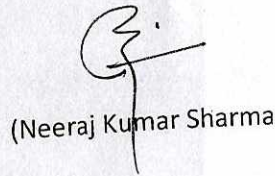 (Neeraj Kumar Sharma